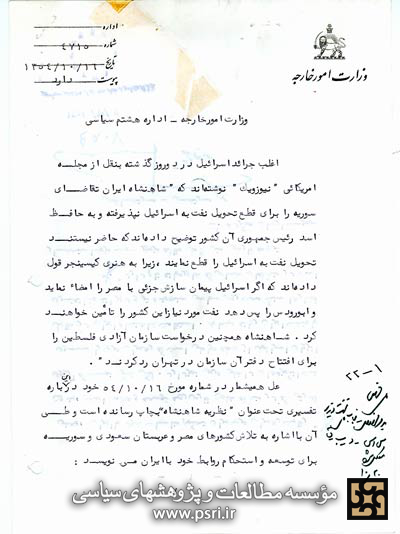 اداره
شماره ۴۷۱۵
تاریخ ۱۳۵۴/۱۰/۱۶
پیوست دارد
وزارت امور خارجه
وزارت امور خارجه – اداره هشتم سیاسی
اغلب جرائد اسرائیل در دو روز گذشته بنقل از مجله
امریکائی "نیوزویک" نوشته‌اند که "شاهنشاه ایران تقاضای
سوریه را برای قطع تحویل نفت به اسرائیل نپذیرفته و به حافظ
اسد رئیس جمهوری آن کشور توضیح داده‌اند که حاضر نیستند
تحویل نفت به اسرائیل را قطع نمایند، زیرا به هنری کیسینجر قول
داده‌اند که اگر اسرائیل پیمان سازش جزئی با مصر را امضاء نماید
و ابورودس را پس دهد نفت مورد نیاز این کشور را تأمین خواهند
کرد. شاهنشاه همچنین درخواست سازمان آزادی فلسطین را
برای افتتاح دفتر آن سازمان در تهران رد کردند".
عل همیشمار در شماره مورخ ۵۴/۱۰/۱۶ خود در اینباره
تفسیری تحت عنوان "نظریه شاهنشاه" بچاپ رسانده است و طی
آن با اشاره به تلاش کشورهای مصر و عربستان سعودی و سوریه
برای توسعه و استحکام روابط خود با ایران می نویسد:
۲۲-۱
مؤسسه مطالعات و پژوهشهای سیاسی
www.psri.ir